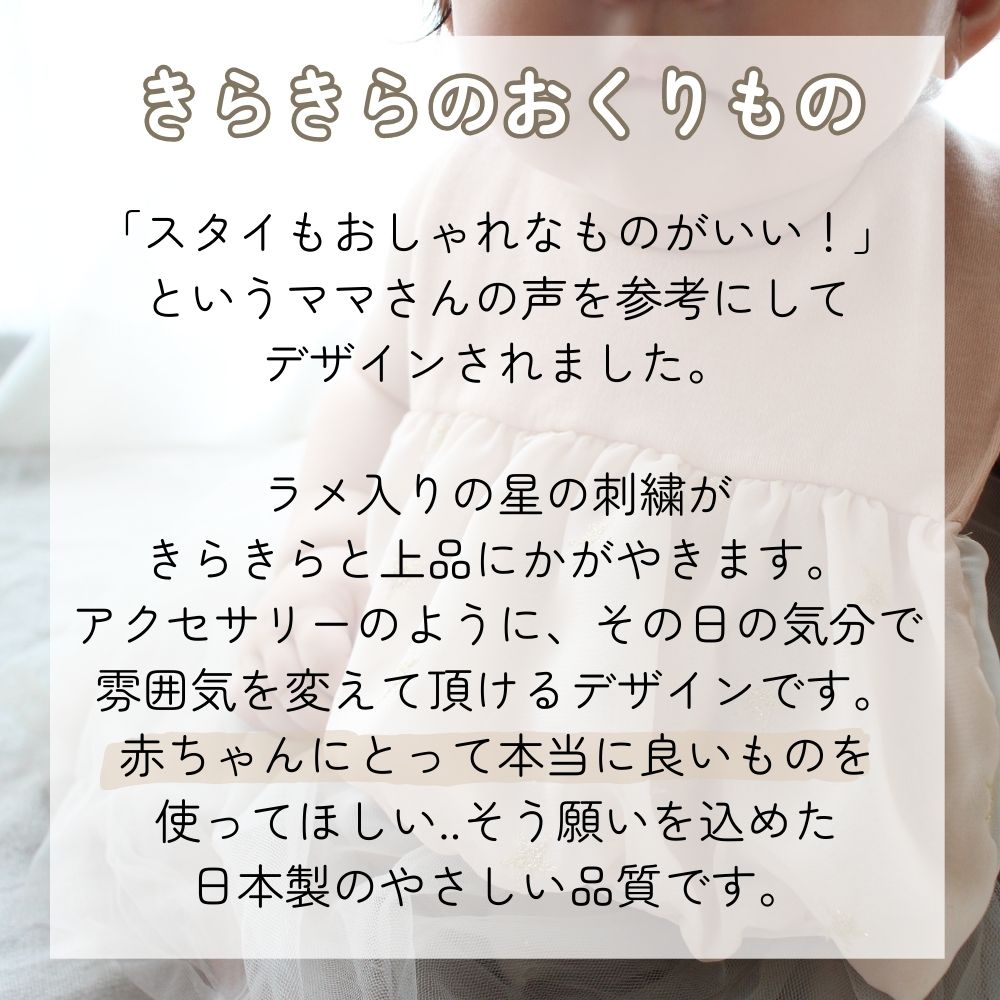 きらきらのおくりもの
「スタイもおしゃれなものがいい！」
というママさんの声を参考にして
デザインされました。
ラメ入りの星の刺繍が
きらきらと上品にかがやきます。
アクセサリーのように、その日の気分で
雰囲気を変えて頂けるデザインです。
赤ちゃんにとって本当に良いものを
使ってほしい..そう願いを込めた
日本製のやさしい品質です。